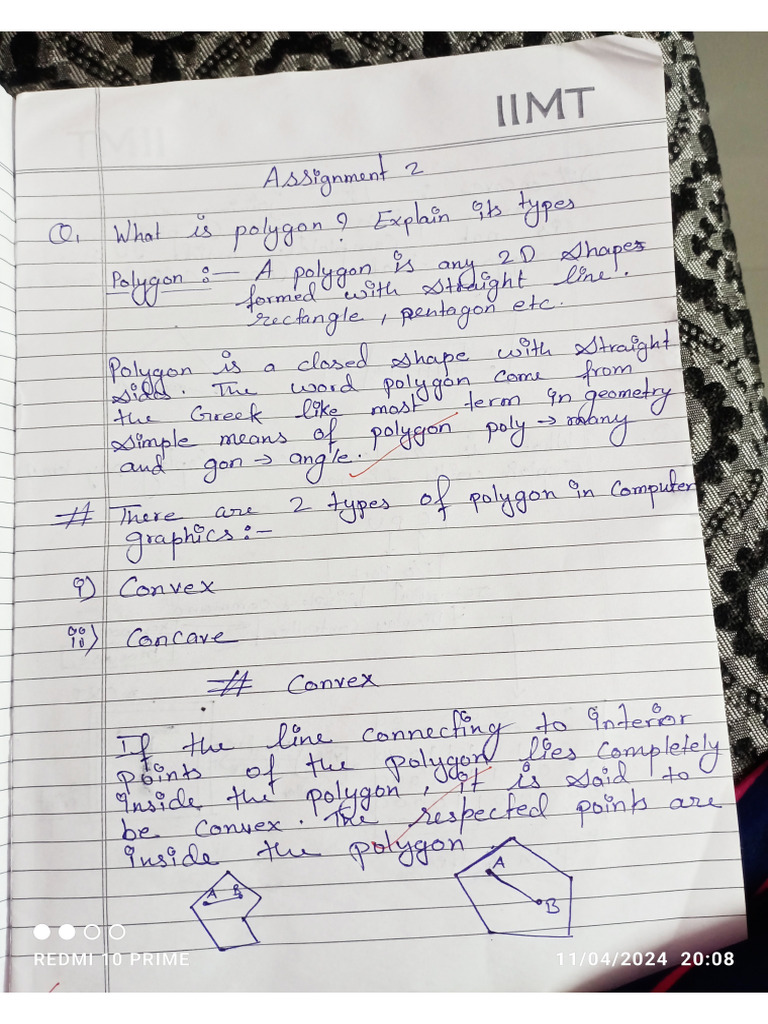 IIMT
Assignment 2
Q. What is polygon? Explain its types
Polygon :- A polygon is any 2D shapes
formed with straight line.
rectangle, pentagon etc.
Polygon is a closed shape with straight
sides. The word polygon come from
the Greek like most term in geometry
simple means of polygon poly → many
and gon → angle.
# There are 2 types of polygon in Computer
graphics :-
i) Convex
ii) Concave
# Convex
If the line connecting to interior
points of the polygon lies completely
inside the polygon, it is said to
be convex. The respected points are
inside the polygon.
A B
A
B
REDMI 10 PRIME
11/04/2024 20:08